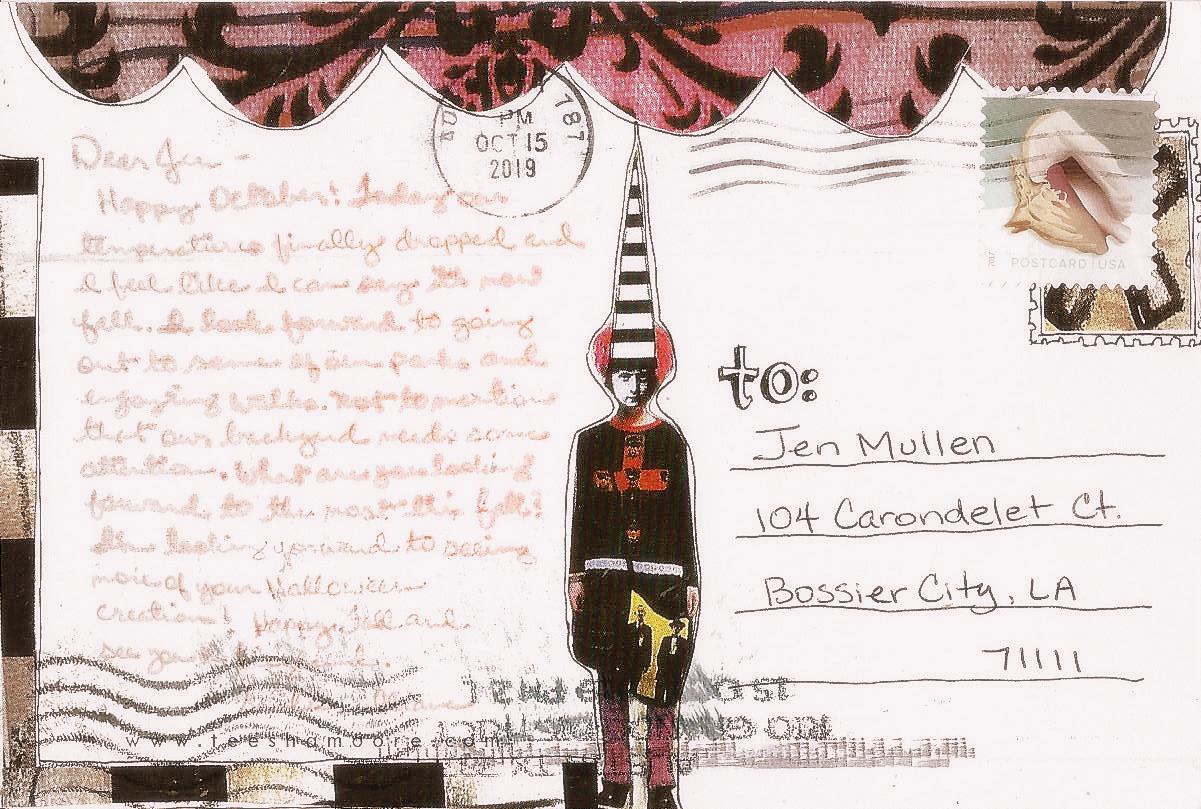 Dear Jen -
Happy October! Today our
temperatures finally dropped and
I feel like I can say it's now
fall. I look forward to going
out to some of our parks and
enjoying walks. Not to mention
that our backyard needs some
attention. What are you looking
forward to the most this fall?
I'm looking forward to seeing
more of your Halloween
creations! Happy Fall and
see you
www.teeshamoore.com
PM
OCT 15
2019
787
2017
POSTCARD | USA
to:
Jen Mullen
104 Carondelet Ct.
Bossier City, LA
71111